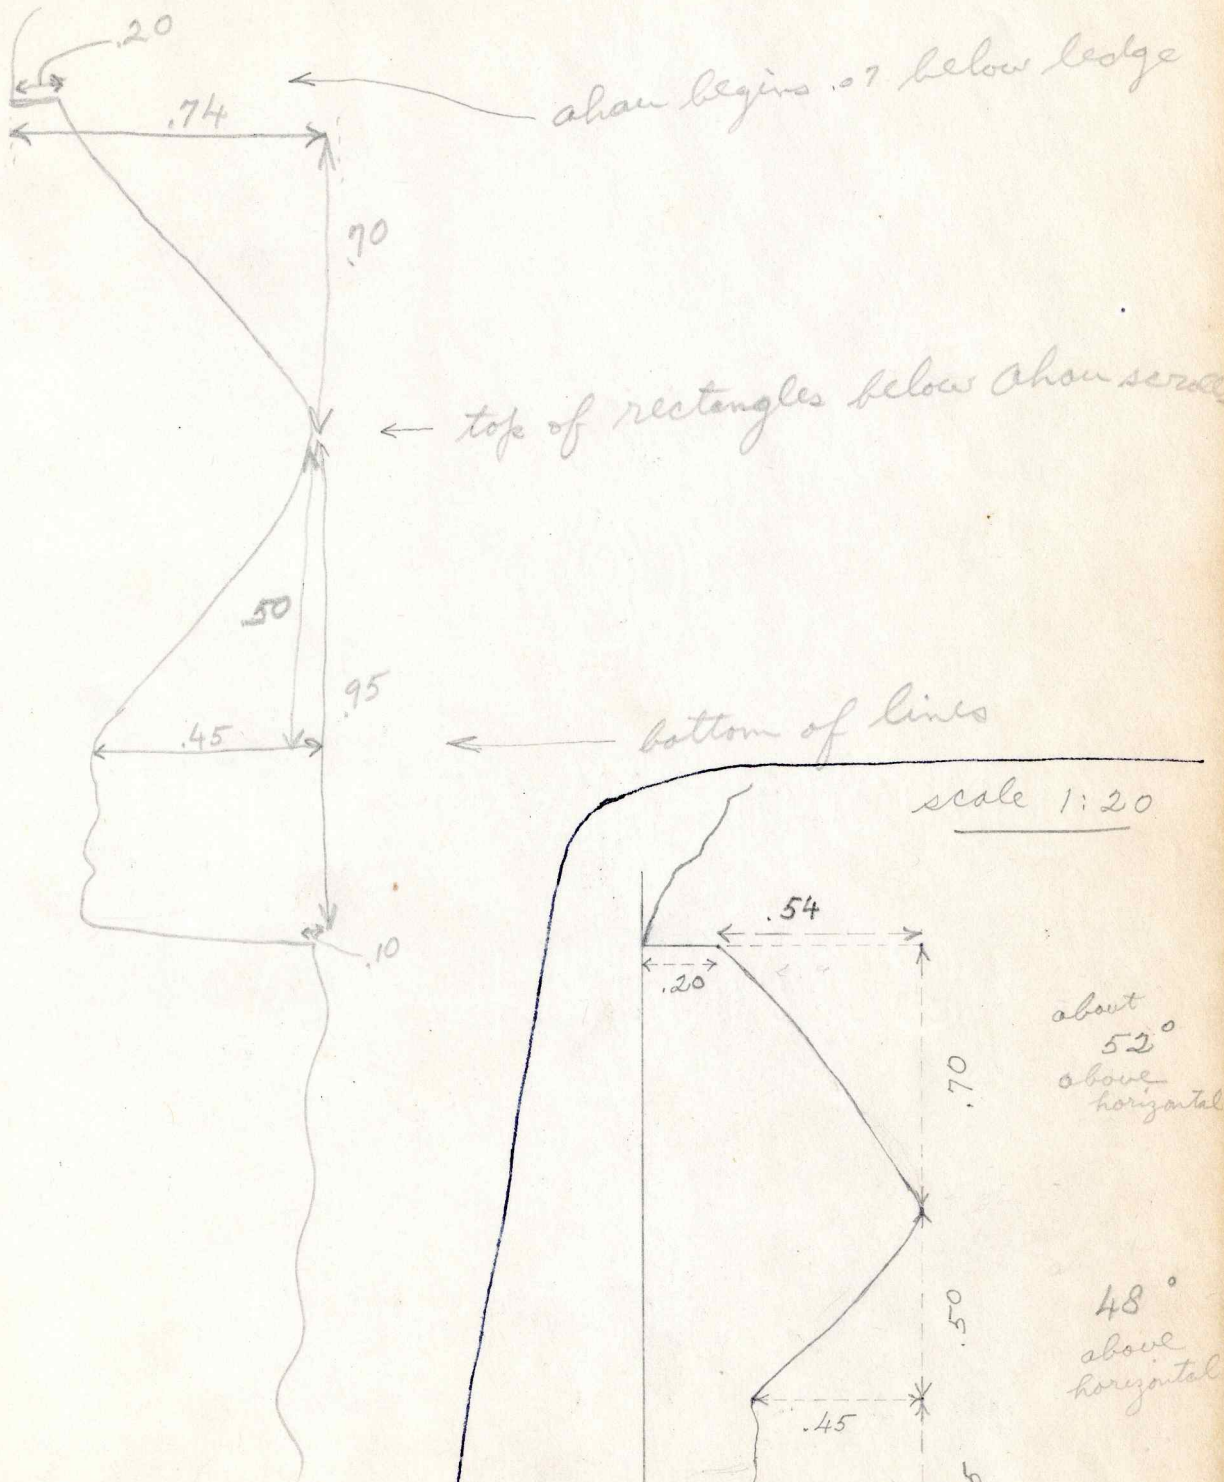 .20
ahau begins .07 below ledge
.74
.70
top of rectangles below Ahau scrolls
.50
.95
.45
bottom of lines
scale 1:20
.10
.54
.20
about
52°
above
horizontal
.70
.50
48°
above
horizontal
.45